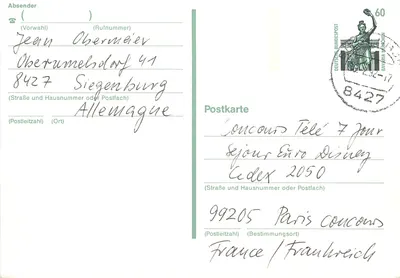 Absender
(                    )
(Vorwahl) (Rufnummer)
Jean Obermeier
Oberumelsdorf 41
8427 Siegenburg
(Straße und Hausnummer oder Postfach)
Allemagne
(Postleitzahl) (Ort)
60
8427
Postkarte
Concours Télé 7 Jour
Séjour Euro Disney
Cedex 2050
(Straße und Hausnummer oder Postfach)
99205 Paris concours
(Postleitzahl) (Bestimmungsort)
France / Frankreich